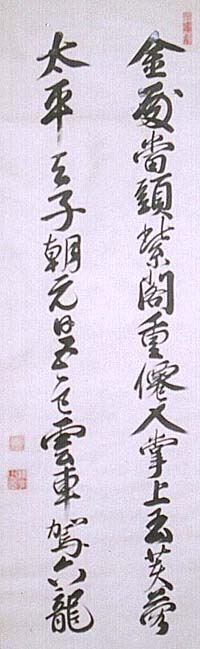 金殿當頭紫閣重僊人掌上玉芙蓉
太平天子朝元日五色雲車駕六龍